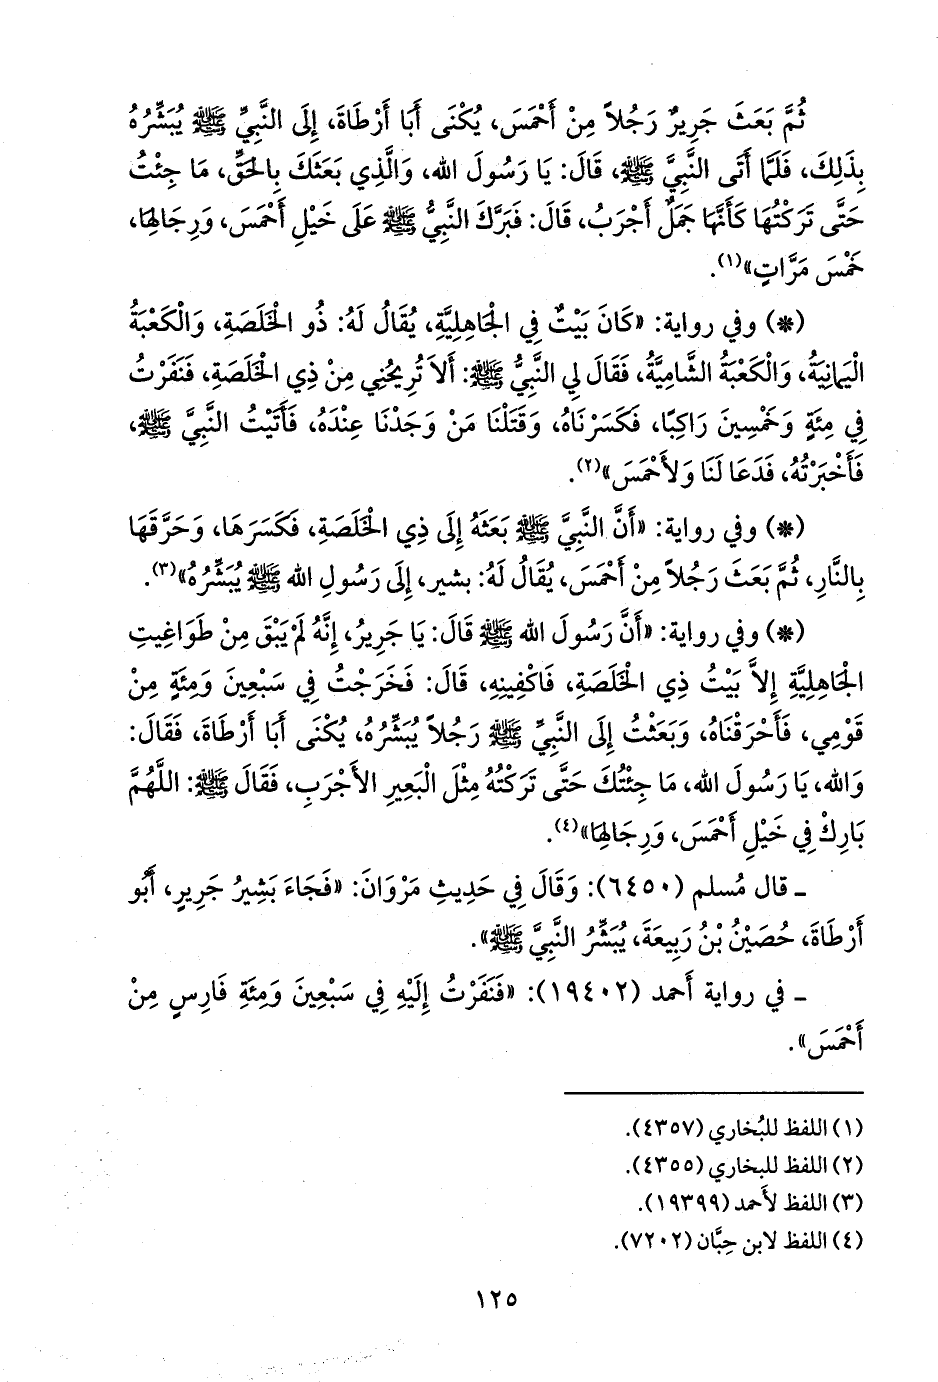 ثُمَّ بَعَثَ جَرِيرٌ رَجُلاً مِنْ أَحْمَسَ، يُكْنَى أَبَا أَرْطَاةَ، إِلَى النَّبِيِّ ﷺ يُبَشِّرُهُ
بِذَلِكَ، فَلَمَّا أَتَى النَّبِيَّ ﷺ، قَالَ: يَا رَسُولَ الله، وَالَّذِي بَعَثَكَ بِالحَقِّ، مَا جِئْتُ
حَتَّى تَرَكْتُهَا كَأَنَّهَا جَمَلٌ أَجْرَبُ، قَالَ: فَبَرَّكَ النَّبِيُّ ﷺ عَلَى خَيْلِ أَحْمَسَ، وَرِجَالِهَا،
خَمْسَ مَرَّاتٍ»(١).
(*) وفي رواية: «كَانَ بَيْتٌ فِي الجَاهِلِيَّةِ، يُقَالُ لَهُ: ذُو الْخَلَصَةِ، وَالْكَعْبَةُ
الْيَمانِيَةُ، وَالْكَعْبَةُ الشَّامِيَّةُ، فَقَالَ لِي النَّبِيُّ ﷺ: أَلاَ تُرِيحُنِي مِنْ ذِي الْخَلَصَةِ، فَنَفَرْتُ
فِي مِئَةٍ وَخَمْسِينَ رَاكِبًا، فَكَسَرْنَاهُ، وَقَتَلْنَا مَنْ وَجَدْنَا عِنْدَهُ، فَأَتَيْتُ النَّبِيَّ ﷺ،
فَأَخْبَرْتُهُ، فَدَعَا لَنَا وَلأَحْمَسَ»(٢).
(*) وفي رواية: «أَنَّ النَّبِيَّ ﷺ بَعَثَهُ إِلَى ذِي الْخَلَصَةِ، فَكَسَرَهَا، وَحَرَّقَهَا
بِالنَّارِ، ثُمَّ بَعَثَ رَجُلاً مِنْ أَحْمَسَ، يُقَالُ لَهُ: بشير، إِلَى رَسُولِ الله ﷺ يُبَشِّرُهُ»(٣).
(*) وفي رواية: «أَنَّ رَسُولَ الله ﷺ قَالَ: يَا جَرِيرُ، إِنَّهُ لَمْ يَبْقَ مِنْ طَوَاغِيتِ
الجَاهِلِيَّةِ إِلاَّ بَيْتُ ذِي الْخَلَصَةِ، فَاكْفِينِهِ، قَالَ: فَخَرَجْتُ فِي سَبْعِينَ وَمِئَةٍ مِنْ
قَوْمِي، فَأَحْرَقْنَاهُ، وَبَعَثْتُ إِلَى النَّبِيِّ ﷺ رَجُلاً يُبَشِّرُهُ، يُكْنَى أَبَا أَرْطَاةَ، فَقَالَ:
وَالله، يَا رَسُولَ الله، مَا جِئْتُكَ حَتَّى تَرَكْتُهُ مِثْلَ الْبَعِيرِ الأَجْرَبِ، فَقَالَ ﷺ: اللَّهُمَّ
بَارِكْ فِي خَيْلِ أَحْمَسَ، وَرِجَالِهَا»(٤).
ـ قال مُسلم (٦٤٥٠): وَقَالَ فِي حَدِيثِ مَرْوَانَ: «فَجَاءَ بَشِيرُ جَرِيرٍ، أَبُو
أَرْطَاةَ، حُصَيْنُ بْنُ رَبِيعَةَ، يُبَشِّرُ النَّبِيَّ ﷺ».
ـ في رواية أَحمد (١٩٤٠٢): «فَنَفَرْتُ إِلَيْهِ فِي سَبْعِينَ وَمِئَةِ فَارِسٍ مِنْ
أَحْمَسَ».
(١) اللفظ للبُخاري (٤٣٥٧).
(٢) اللفظ للبخاري (٤٣٥٥).
(٣) اللفظ لأَحمد (١٩٣٩٩).
(٤) اللفظ لابن حِبَّان (٧٢٠٢).
١٢٥